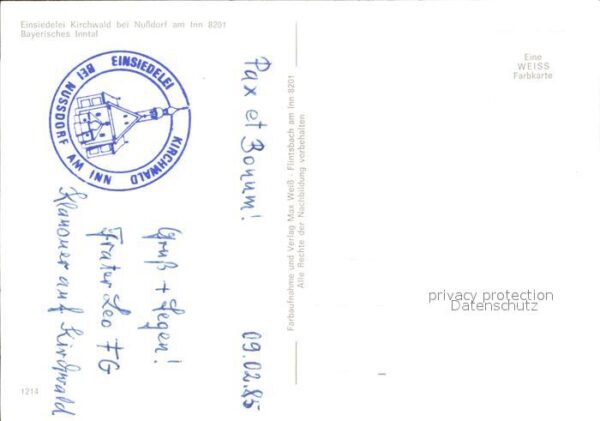 Einsiedelei Kirchwald bei Nußdorf am Inn 8201
Bayerisches Inntal
EINSIEDELEI KIRCHWALD
BEI NUSSDORF AM INN
Pax et Bonum!
09.02.85
Gruß + Segen!
Frater Leo FG
Klausner auf Kirchwald
Farbaufnahme und Verlag Max Weiß · Flintsbach am Inn 8201
Alle Rechte der Nachbildung vorbehalten
Eine
WEISS
Farbkarte
privacy protection
Datenschutz
1214